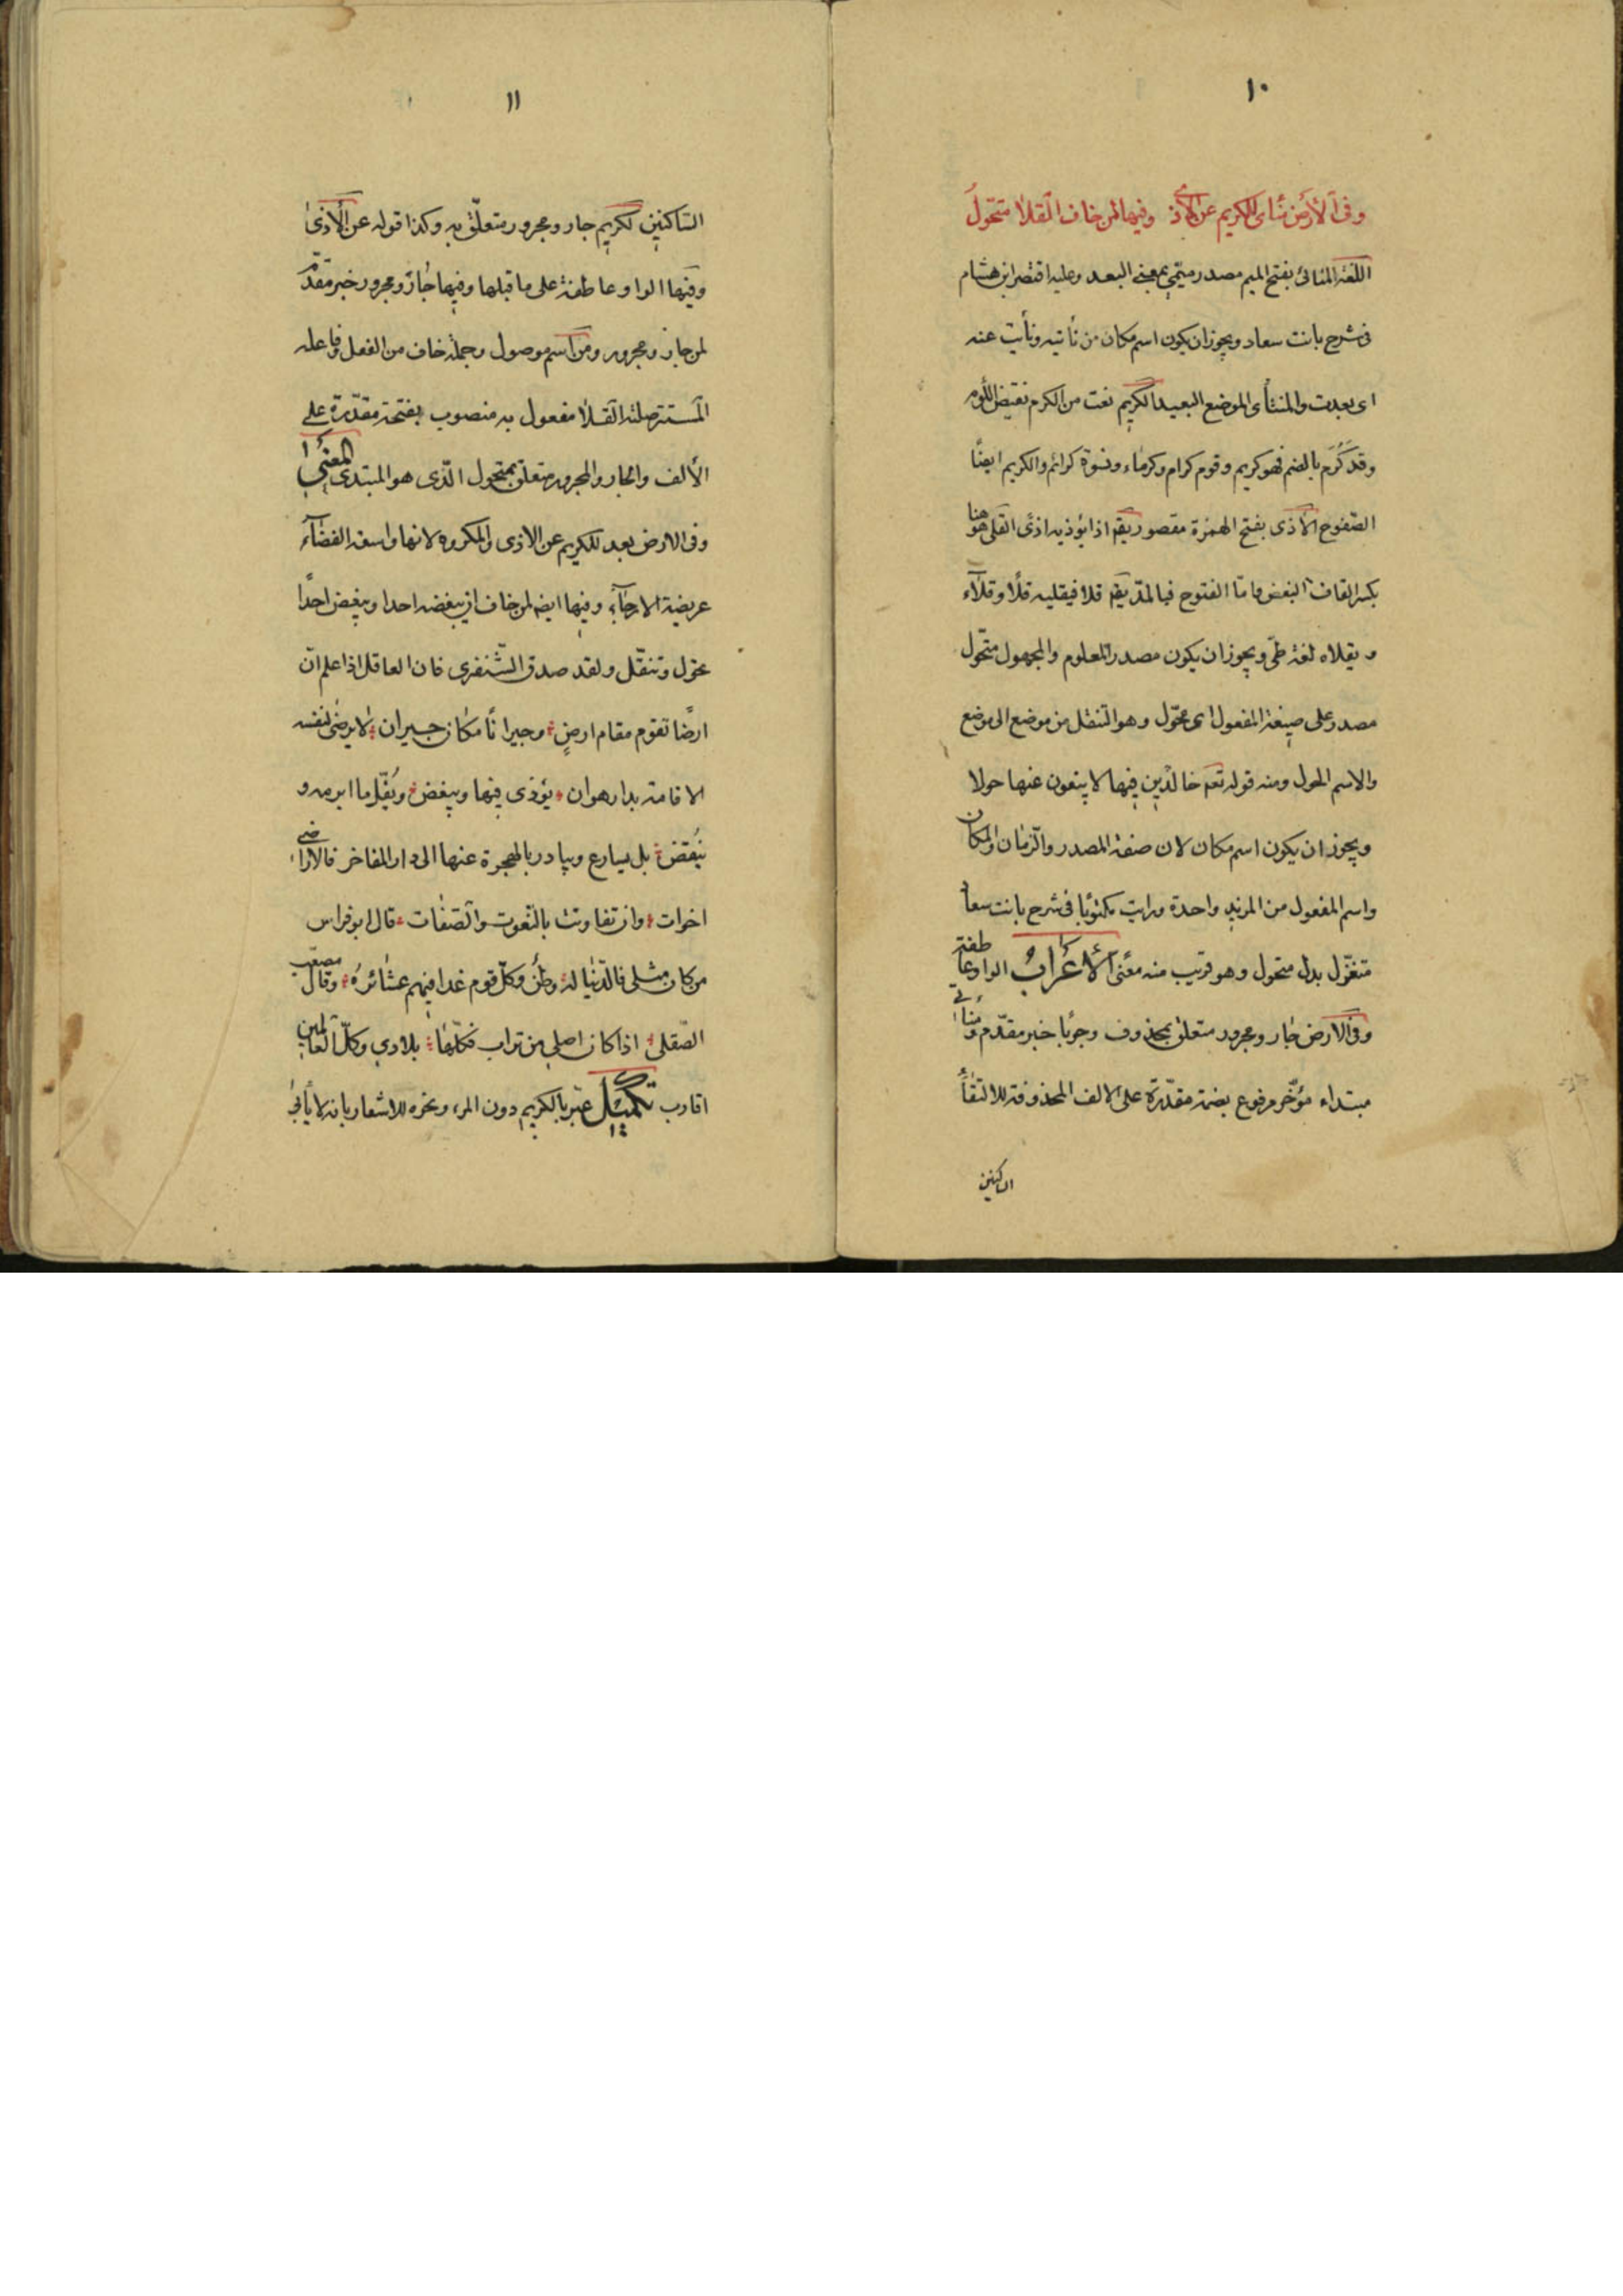 ١٠
وفي الأرض منأى للكريم عن الأذى وفيها لمن خاف القلا متحول
اللغة المنائ بفتح الميم مصدر ميمي بمعنى البعد وعليه اقتصر ابن هشام
في شرح بانت سعاد ويجوز ان يكون اسم مكان من نأتيه ونأيت عنه
اى بعدت والمنتأى الموضع البعيد الكريم نعت من الكرم نقيض اللؤم
وقد كَرُم بالضم فهو كريم وقوم كرام وكرماء ونسوة كرائم والكريم ايضًا
الصفوح الأذى بفتح الهمزة مقصور يقم اذا يؤذيه اذىً القلى هو هنا
بكسر القاف البغض واما الفتوح فبالمد يقم قلاه يقليه قلًا وقلآء
ويقلاه لغة طي ويجوز ان يكون مصدر المعلوم والمجهول متحول
مصدر على صيغة المفعول اى تحوّل وهو التنقل من موضع الى موضع
والاسم الحول ومنه قوله تعم خالدين فيها لا يبغون عنها حولا
ويجوز ان يكون اسم مكان لان صفة المصدر والزمان والمكان
واسم المفعول من المزيد واحدة ورايت مكتوبًا في شرح بانت سعا
متغزّل بدل متحول وهو قريب منه معنًى الأعراب الواو عاطفة
وفي الارض جار ومجرور متعلق بمحذوف وجوبًا خبر مقدّم ومنائ
مبتداء مؤخّر مرفوع بضمة مقدّرة على الالف المحذوفة للالتقاء
الساكنين
١١
الساكنين لكريم جار ومجرور متعلّق به وكذا قوله عن الأذى
وفيها الواو عاطفة على ما قبلها وفيها جار ومجرور خبر مقدّم
لمن جار ومجرور ومن اسم موصول وجملة خاف من الفعل وفاعله
المستتر صلته القلا مفعول به منصوب بفتحة مقدّرة على
الألف والجار والمجرور متعلق بمتحول الّذى هو المبتدى المعنى
وفى الارض بعد للكريم عن الاذى والمكروه لانها واسعة الفضآء
عريضة الارجآء وفيها ايضم لمن خاف ان يبغضه احدا ويبغض احدًا
تحوّل وتنقّل ولقد صدق الشّنفرى فان العاقل اذا علم انّ
ارضًا تقوم مقام ارضٍ وجيرانًا مكان جيران لا يرضى لنفسه
الاقامة بدار هوان يؤذى فيها ويبغض ما ابرمه و
يُنقض بل يسارع ويبادر بالهجرة عنها الى دار المفاخر فالاراضى
اخوات وان تفاوتت بالنّعوت والصّفات قال ابو فراس
من كان مثلى فالدّنيا له وطنٌ وكلّ قوم غدا فيهم عشائرُه وقال مصعب
الصّقلى اذا كان اصلى من تراب فكلّها بلادي وكلّ العالمين
اقارب تكميل عبّر بالكريم دون المرء ونحوه للاشعار بانه لا يأبى